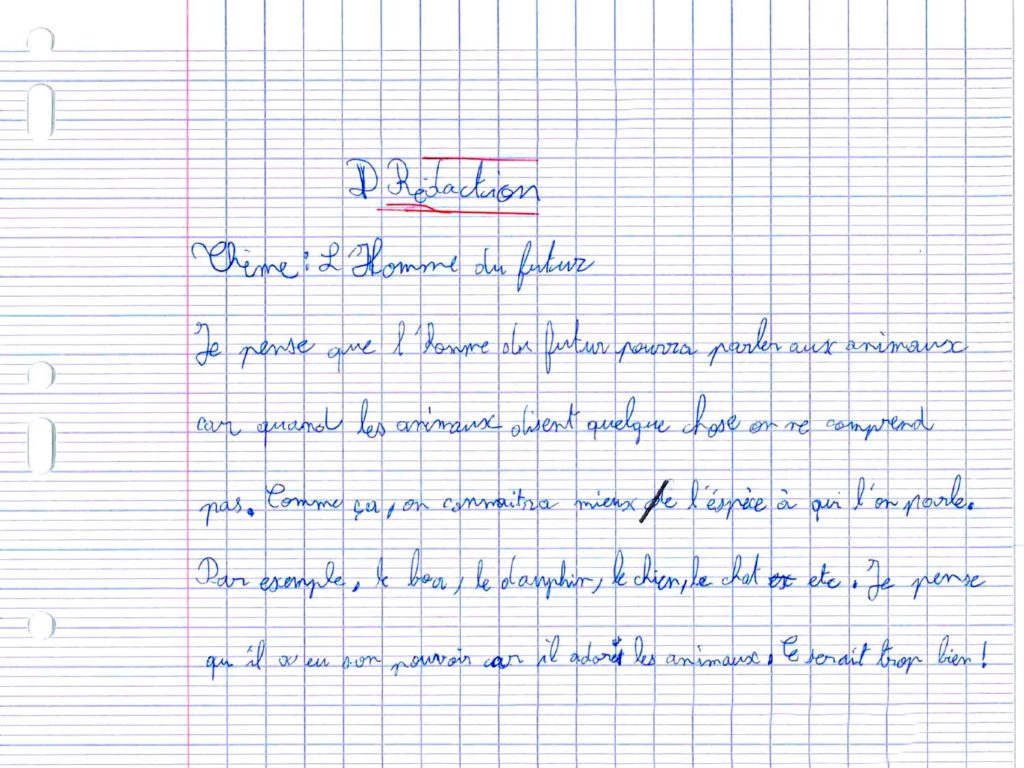 Rédaction
Thème : L'Homme du futur
Je pense que l'homme du futur pourra parler aux animaux
car quand les animaux disent quelque chose on ne comprend
pas. Comme ça, on connaitra mieux l'éspèce à qui l'on parle.
Par exemple, le boa, le dauphin, le chien, le chat etc. Je pense
qu'il a eu son pouvoir car il adore les animaux. Ce serait trop bien !